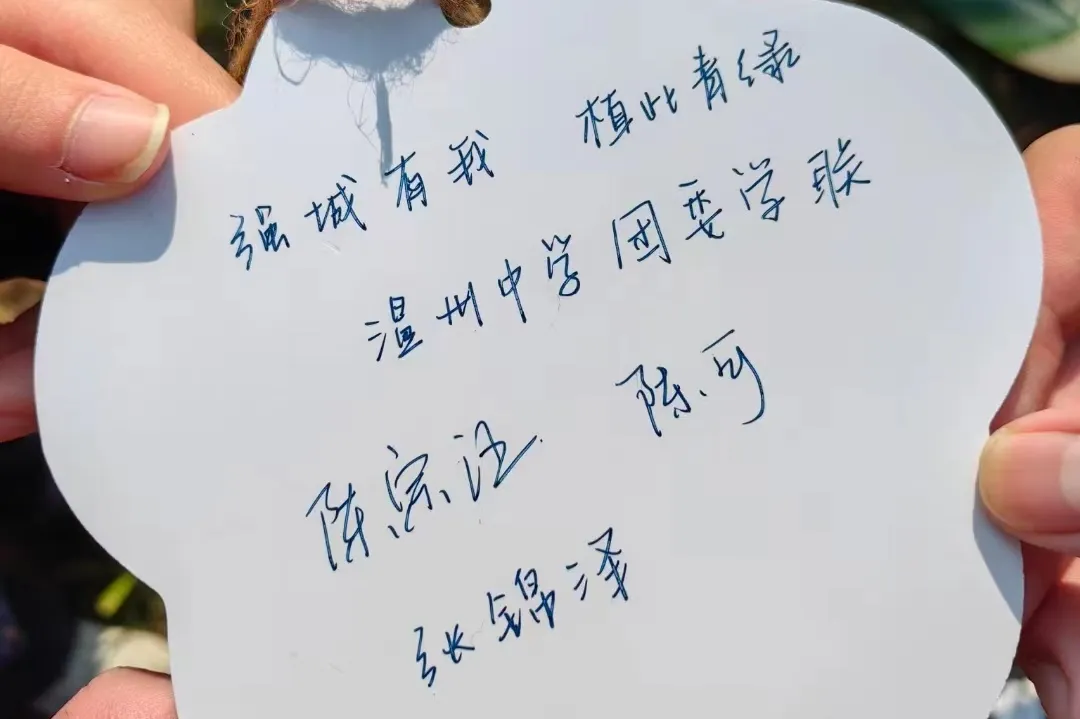 强城有我 植此青绿
温州中学团委学联
陈宗汪 陈可
张锦泽